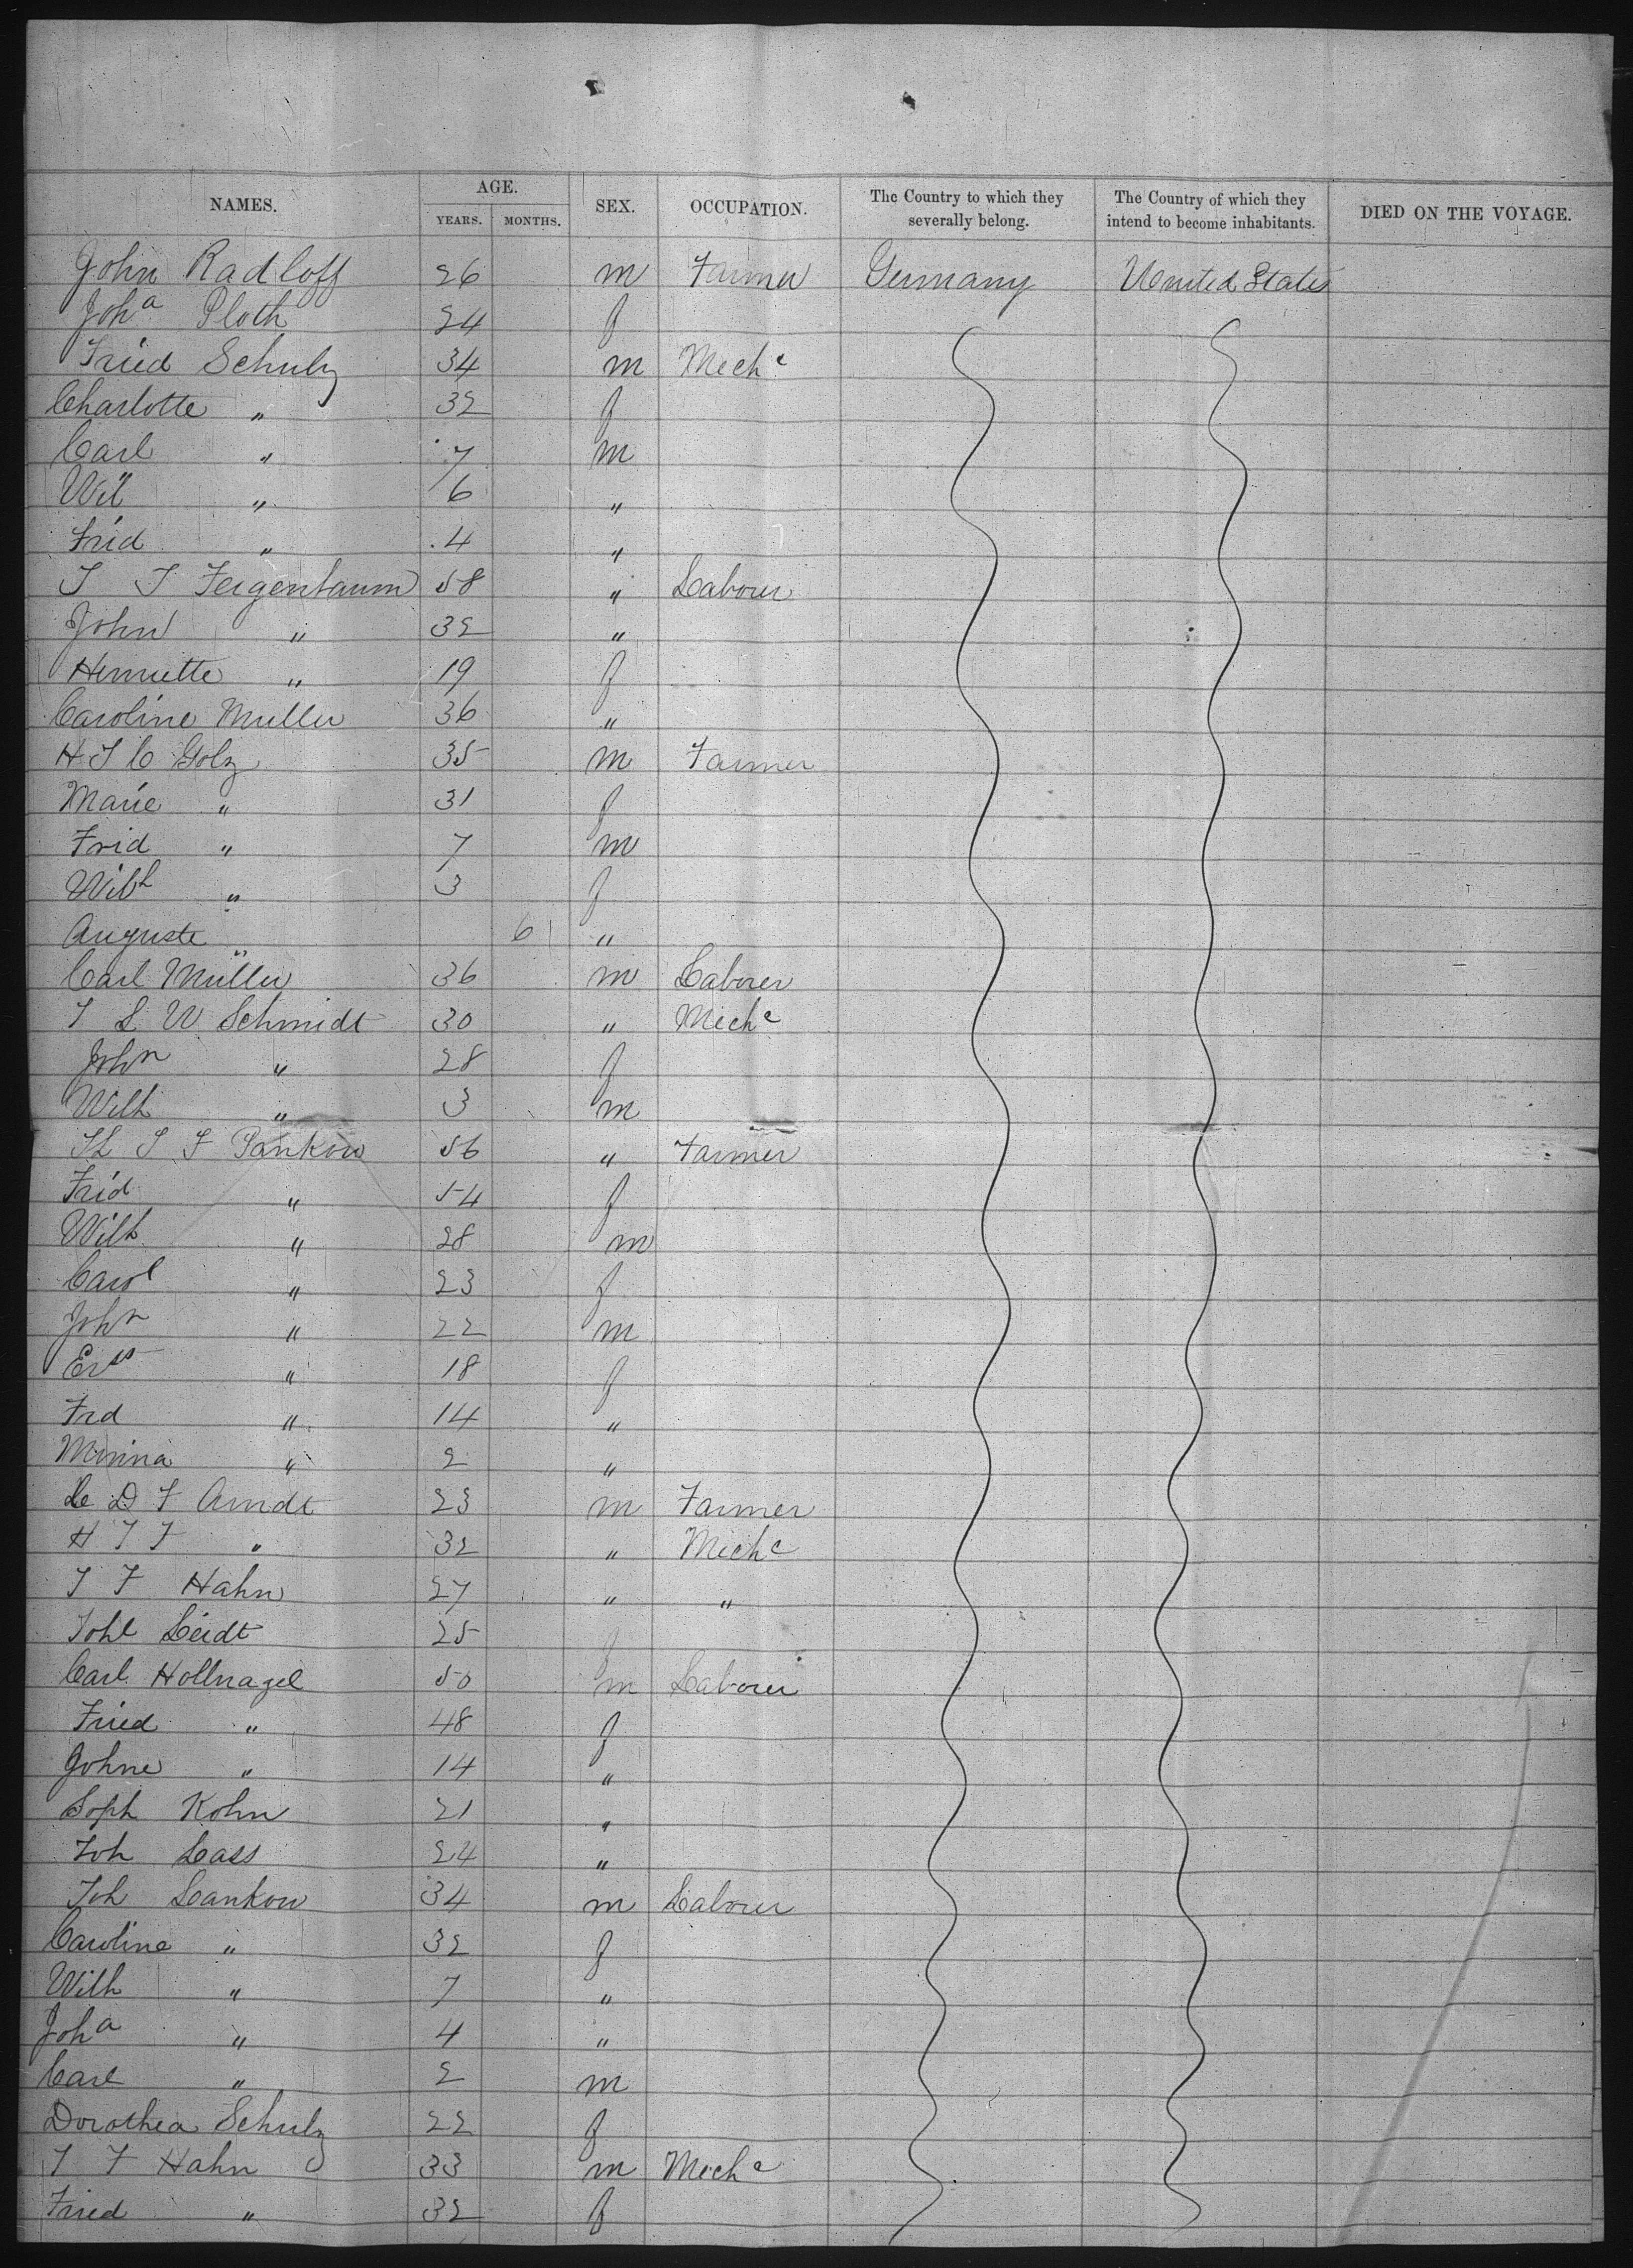 NAMES. AGE. SEX. OCCUPATION. The Country to which they severally belong. The Country of which they intend to become inhabitants. DIED ON THE VOYAGE.
YEARS. MONTHS.
John Radloff 26 m Farmer Germany United States
Joh a Ploth 24 f
Fried Schulz 34 m Mech c
Charlotte " 32 f
Carl " 7 m
Wil " 6 "
Frid " 4 "
J J Feigenbaum 58 " Labourer
John " 32 "
Henriette " 19 f
Caroline Muller 36 "
H J C Golz 35 m Farmer
Marie " 31 f
Frid " 7 m
Wilh " 3 f
Auguste " 6 "
Carl Müller 36 m Laborer
J L W Schmidt 30 " Mech c
John " 28 f
Wilh " 3 m
J F Pankow 56 " Farmer
Frid " 54 f
Wilh " 28 m
Carol " 23 f
John " 22 m
" 18 f
Frd " 14 "
Minna " 2 "
D F Arndt 23 m Farmer
H J F " 32 " Mech c
J F Hahn 27 " "
Joh Leidt 25 f
Carl Hollnagel 50 m Labourer
Fried " 48 f
Johne " 14 "
Soph Kohn 21 "
Joh Lass 24 "
Joh Lankow 34 m Labourer
Caroline " 32 f
Wilh " 7 "
Joh a " 4 "
Carl " 2 m
Dorothea Schulz 22 f
J F Hahn 33 m Mech c
Fried " 32 f